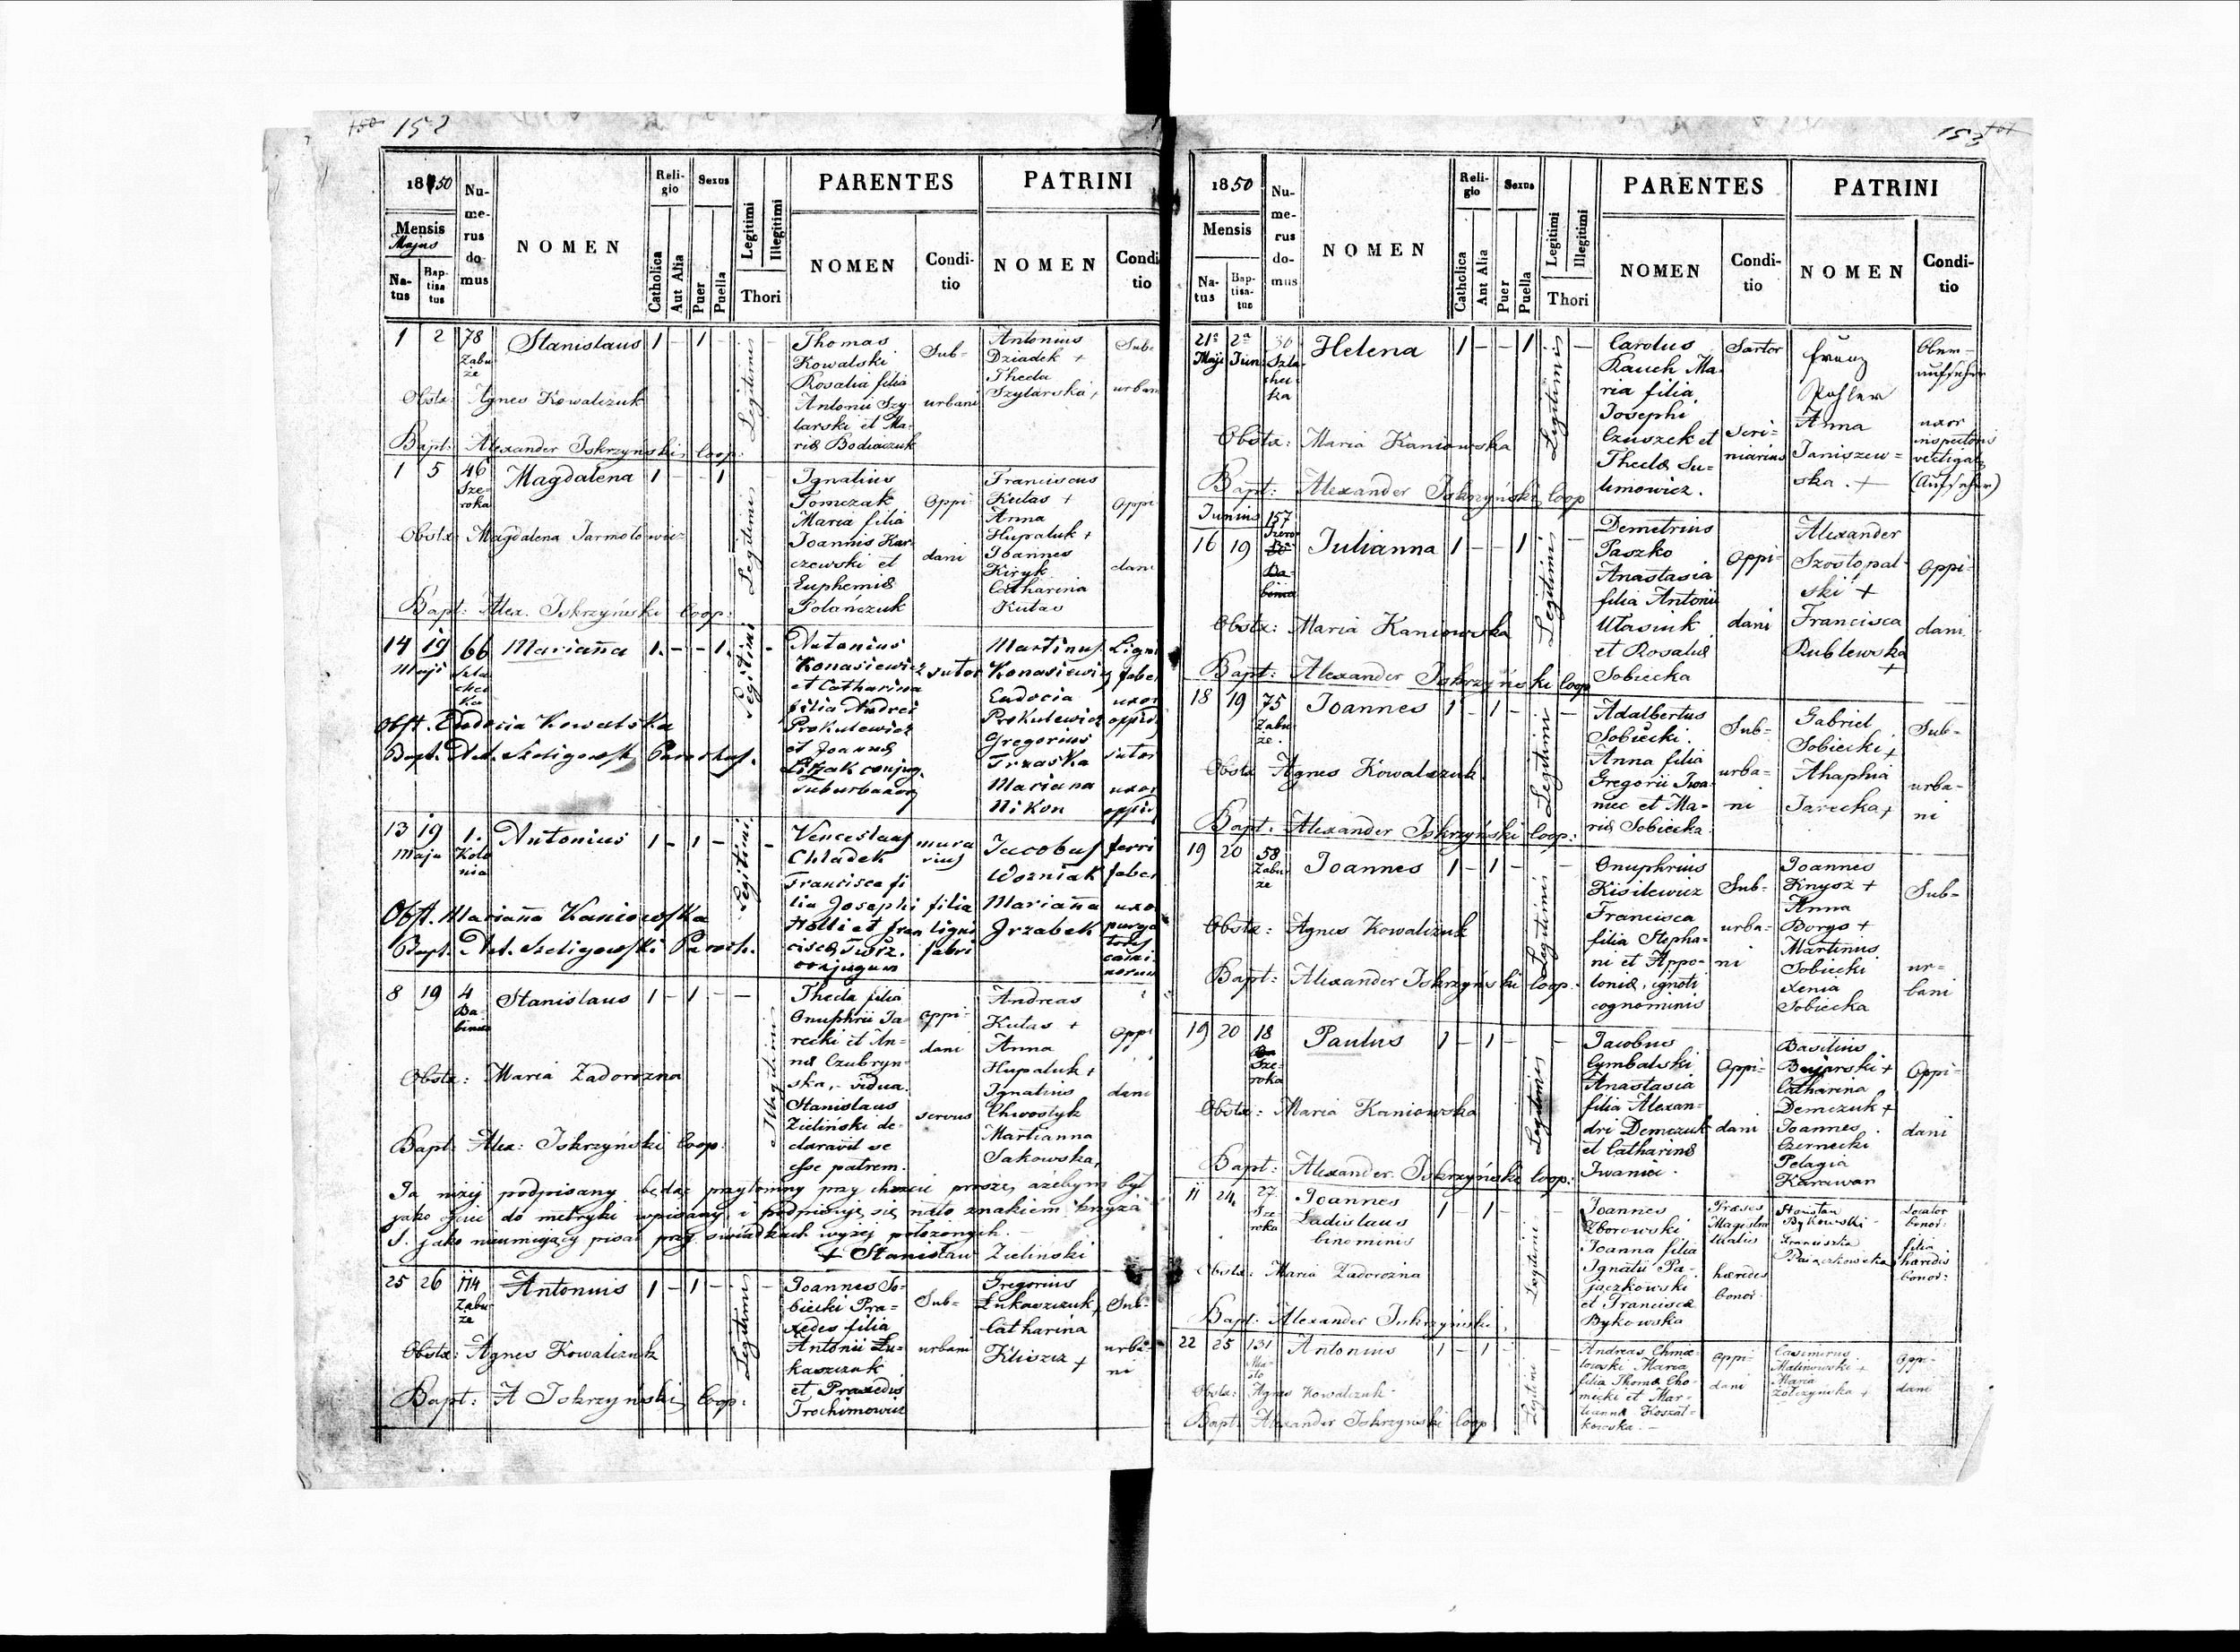 152
1850
Mensis
Majus
Natus
Baptisatus
Numerus domus
NOMEN
Religio
Catholica
Aut Alia
Sexus
Puer
Puella
Legitimi
Illegitimi
Thori
PARENTES
NOMEN
Conditio
PATRINI
NOMEN
Conditio
1 2 78 Stanislaus 1 - 1 - Legitimus -
Zabu
że
Thomas
Kowalski
Rosalia filia
Antonii Szy-
larski et Ma-
riæ Bodiaczuk
Sub-
urbani
Antonius
Dziadek +
Thecla
Szylarska,
Sub-
urbani
Obstx: Agnes Kowalczuk
Bapt: Alexander Iskrzyński Coop:
1 5 46 Magdalena 1 - - 1 Legitimus
Sze-
roka
Ignatius
Tomczak
Maria filia
Joannis Kar-
czewski et
Euphemiæ
Polańczuk
Oppi-
dani
Franciscus
Kutas +
Anna
Hupaluk +
Joannes
Kiryk
Catharina
Kutas
Oppi
dani
Obstx: Magdalena Jarmołowicz
Bapt: Alex. Iskrzyński Coop:
14 19 66 Marianna 1. - - 1. Legitimi -
Maji Szla
chec
ka
Antonius
Konasiewicz
et Catharina
filia Andrei
Prokulewicz
et Joannæ
conjug.
suburbanor
sutor
Martinus
Konasiewicz
Eudocia
Prokulewicz
Gregorius
Trzaska
Mariana
Nikon
Ligni
faber
uxor
oppid
sutor
uxor
oppid
Obst. Eudocia Kowalska
Bapt. Ant. Szeligowski Parochus.
13 19 1. Antonius 1 - 1 - Legitimi. -
Maju Kolo
nia
Venceslaus
Chladek
Francisca fi
lia Josephi
Holli et Fran
ciscæ
conjugum
mura
rius
filia
ligni
fabri
Jacobus
Wozniak
Marianna
Jrzabek
ferri
faber
uxor
Obst. Marianna Kaniowska
Bapt. Ant. Szeligowski Paroch.
8 19 4 Stanislaus 1 - 1 - - Illegitimus
Ba-
binia
Thecla filia
Onuphrii Ja-
recki et An-
næ Czubryn-
ska, vidua.
Stanislaus
Zieliński de-
claravit se
esse patrem.
Oppi-
dani
servus
Andreas
Kutas +
Anna
Hupaluk +
Ignatius
Chwostyk
Martianna
Sakowska,
Oppi
dani
Obstx: Maria Zadorozna
Bapt: Alex: Iskrzyński Coop:
Ja niżej podpisany będąc przytomny przy chrzcie proszę, ażebym był
jako ojciec do metryki wpisany i podpisuję się nato znakiem krzyża
S. jako nieumiejący pisać przy świadkach wyżej położonych.
+ Stanisław Zieliński
25 26 114 Antonius 1 - 1 - Legitimus -
Zabu
że
Joannes So-
biecki Pra-
xedes filia
Antonii Łu-
kaszczuk
et Praxedis
Trochimowicz
Sub-
urbani
Gregorius
Łukaszczuk,
Catharina
Kliszcz +
Sub-
urba-
ni
Obstx: Agnes Kowalczuk
Bapt: A Iskrzyński Coop:
153
1850
Mensis
Natus
Baptisatus
Numerus domus
NOMEN
Religio
Catholica
Aut Alia
Sexus
Puer
Puella
Legitimi
Illegitimi
Thori
PARENTES
NOMEN
Conditio
PATRINI
NOMEN
Conditio
21ª 2ª 30 Helena 1 - - 1 Legitimus -
Maji Jun Szla-
chec
ka
Carolus
Rauch Ma-
ria filia
Josephi
Czuszek et
Theclæ Su-
limowicz.
Sartor
scri-
niarius
Franz
Pohler
Anna
Janiszew-
ska. +
Ober-
aufseher
uxor
inspectoris
vectigal
(Aufseher)
Obstx: Maria Kaniowska
Bapt: Alexander Iskrzyński Coop
Junius 157
16 19 Julianna 1 - - 1 Legitimus -
Demetrius
Paszko
Anastasia
filia Antonii
Utasiuk
et Rosaliæ
Sobiecka
Oppi-
dani
Alexander
Szostopal-
ski +
Francisca
Rublewska
+
Oppi-
dani.
Obstx: Maria Kaniowska
Bapt: Alexander Iskrzyński Coop
18 19 75 Joannes 1 - 1 - Legitimus -
Zabu
że.
Adalbertus
Sobiecki.
Anna filia
Gregorii Iwa-
niec et Ma-
riæ Sobiecka.
Sub-
urba-
ni
Gabriel
Sobiecki +
Ahaphia
Jarecka +
Sub-
urba-
ni
Obstx Agnes Kowalczuk
Bapt: Alexander Iskrzyński Coop:
19 20 58 Joannes 1 - 1 - Legitimus -
Zabu
że
Onuphrius
Kisilewicz
Francisca
filia Stepha-
ni et Appo-
loniæ, ignoti
cognominis
Sub-
urba-
ni
Joannes
Knysz +
Anna
Borys +
Martinus
Sobiecki
Xenia
Sobiecka
Sub-
ur-
bani
Obstx: Agnes Kowalczuk
Bapt: Alexander Iskrzyński Coop:
19 20 18 Paulus 1 - 1 - Legitimus -
Sze-
roka
Jacobus
Cymbalski
Anastasia
filia Alexan-
dri Demczuk
et Catharinæ
Iwanice.
Oppi-
dani
Basilius
Bujarski +
Catharina
Demczuk +
Joannes
Czernecki
Pelagia
Karawan
Oppi-
dani
Obstx: Maria Kaniowska
Bapt: Alexander Iskrzyński Coop:
11 24 27 Joannes 1 - 1 - Legitimi -
Sze-
roka
Ladislaus
binominis
Joannes
Zborowski
Joanna filia
Ignatii Pa-
jączkowski
et Francisca
Bykowska
Præses
Magistra
tualis
hæredes
bonor.
Stanisław
Bykowski
Franciszka
Pajączkowska
Locator
bonor:
filia
hæredis
bonor:
Obstx: Maria Zadorożna
Bapt: Alexander Iskrzyński
22 25 131 Antonius 1 - 1 - Legitimi
Mia-
sto
Andreas Chmie-
lowski Maria
filia Thomæ Cho-
micki et Mar-
tiannæ Koszał-
kowska. -
Oppi-
dani
Casimirus
Malinowski +
Maria
Zołczyńska +
Oppi-
dani
Obstx: Agnes Kowalczuk
Bapt: Alexander Iskrzyński Coop